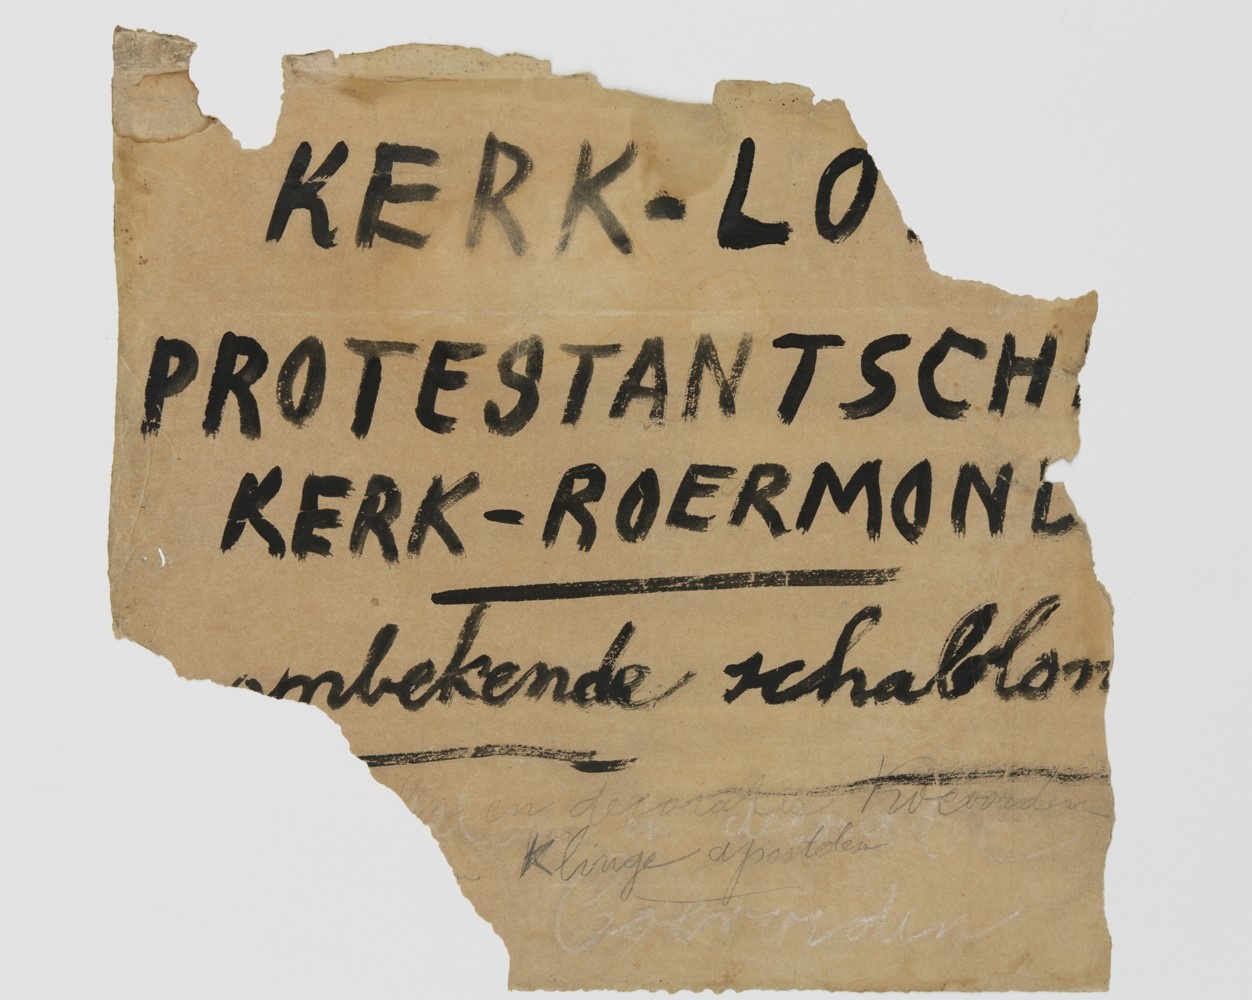 KERK-LO
PROTESTANTSCH
KERK-ROERMOND
onbekende schablon
en decoratie Koevorden
Klinge apostelen
Coevorden